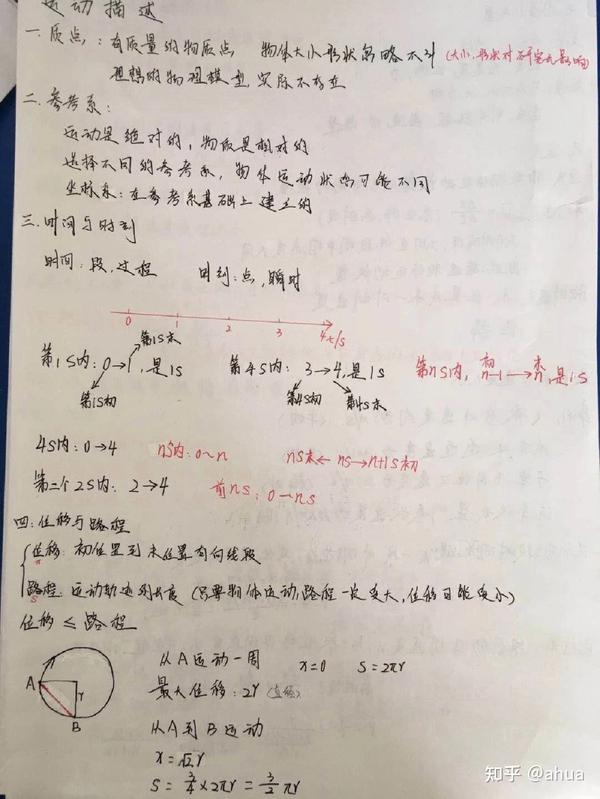 运动描述
一.质点:有质量的物质点 物体大小形状忽略不计(大小,形状对研究无影响)
理想的物理模型,实际不存在
二.参考系:
运动是绝对的,物质是相对的
选择不同的参考系,物体运动状态可能不同
坐标系:在参考系基础上建立的
三.时间与时刻
时间:段,过程 时刻:点,瞬时
0 1 2 3 4 t/s
第1S末
第1S内:0→1,是1S 第4S内:3→4,是1S 第nS内,n-1→n,是1S
初 末
第1S初 第4S初 第4S末
4S内:0→4 nS内:0~n nS末←nS→n+1S初
第二个2S内:2→4 前nS:0—nS
四:位移与路程
位移:初位置到末位置有向线段
x
路程:运动轨迹的长度(只要物体运动,路程一定变大,位移可能变小)
S
位移≤路程
从A运动一周 x=0 S=2πr
A r B
最大位移:2r(直径)
从A到B运动
x=√2r
S=3/4×2πr=3/2πr
知乎 @ahua